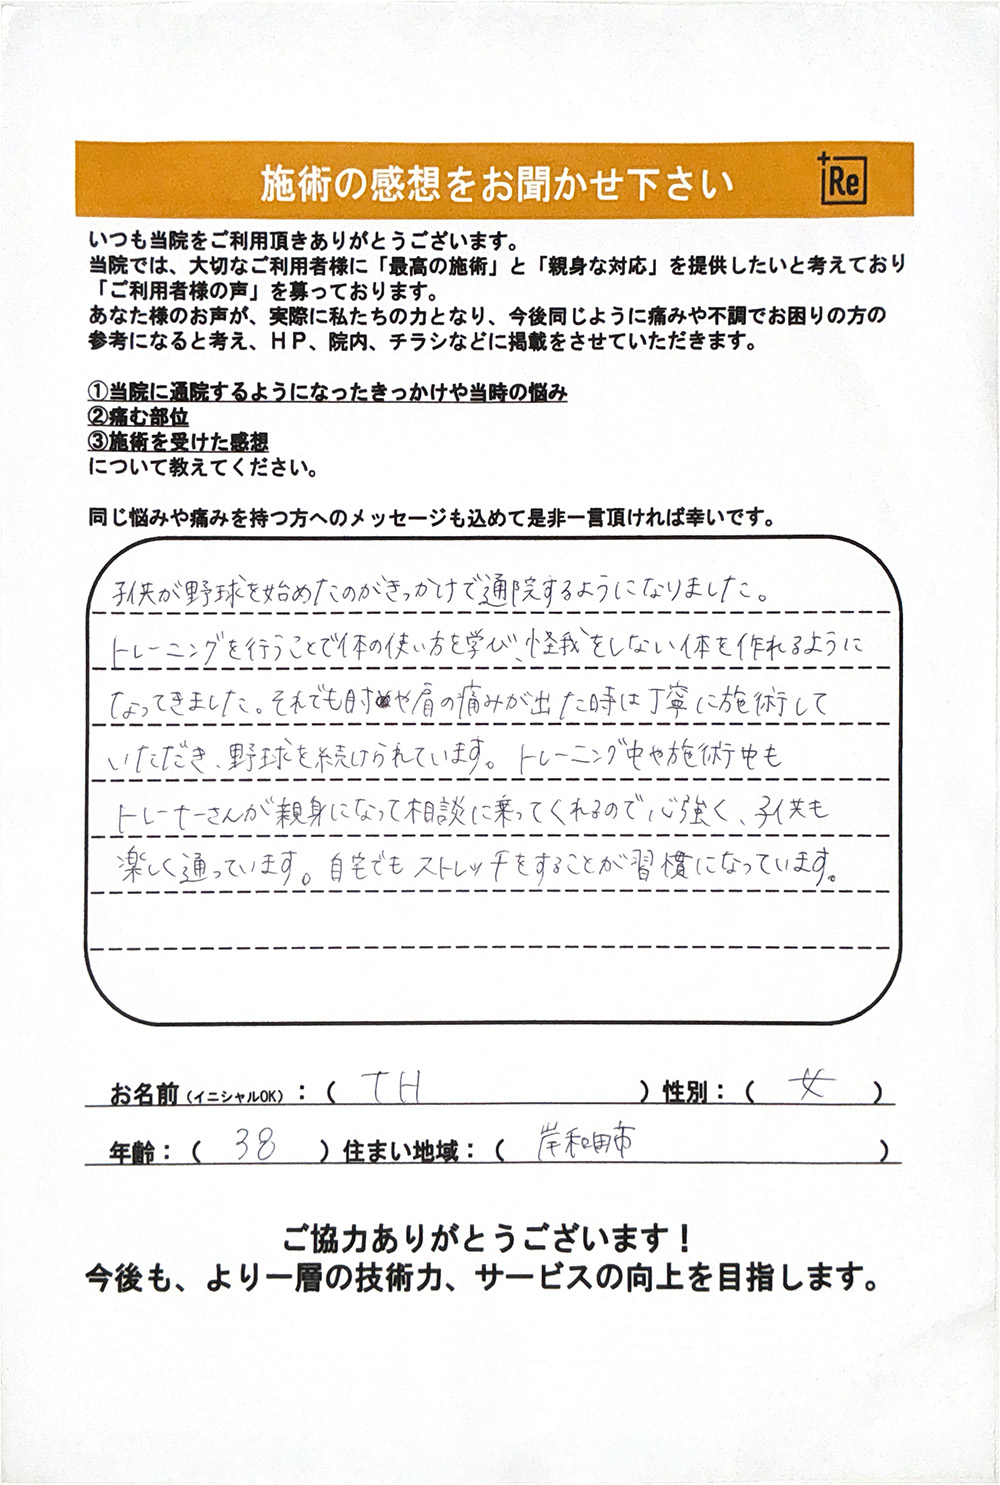 施術の感想をお聞かせ下さい
+Re
いつも当院をご利用頂きありがとうございます。
当院では、大切なご利用者様に「最高の施術」と「親身な対応」を提供したいと考えており
「ご利用者様の声」を募っております。
あなた様のお声が、実際に私たちの力となり、今後同じように痛みや不調でお困りの方の
参考になると考え、ＨＰ、院内、チラシなどに掲載をさせていただきます。
①当院に通院するようになったきっかけや当時の悩み
②痛む部位
③施術を受けた感想
について教えてください。
同じ悩みや痛みを持つ方へのメッセージも込めて是非一言頂ければ幸いです。
子供が野球を始めたのがきっかけで通院するようになりました。
トレーニングを行うことで体の使い方を学び、怪我をしない体を作れるように
なってきました。それでも肘や肩の痛みが出た時は丁寧に施術して
いただき、野球を続けられています。トレーニング中や施術中も
トレーナーさんが親身になって相談に乗ってくれるので心強く、子供も
楽しく通っています。自宅でもストレッチをすることが習慣になっています。
お名前（イニシャルOK）：（ TH ）性別：（ 女 ）
年齢：（ 38 ）住まい地域：（ 岸和田市 ）
ご協力ありがとうございます！
今後も、より一層の技術力、サービスの向上を目指します。